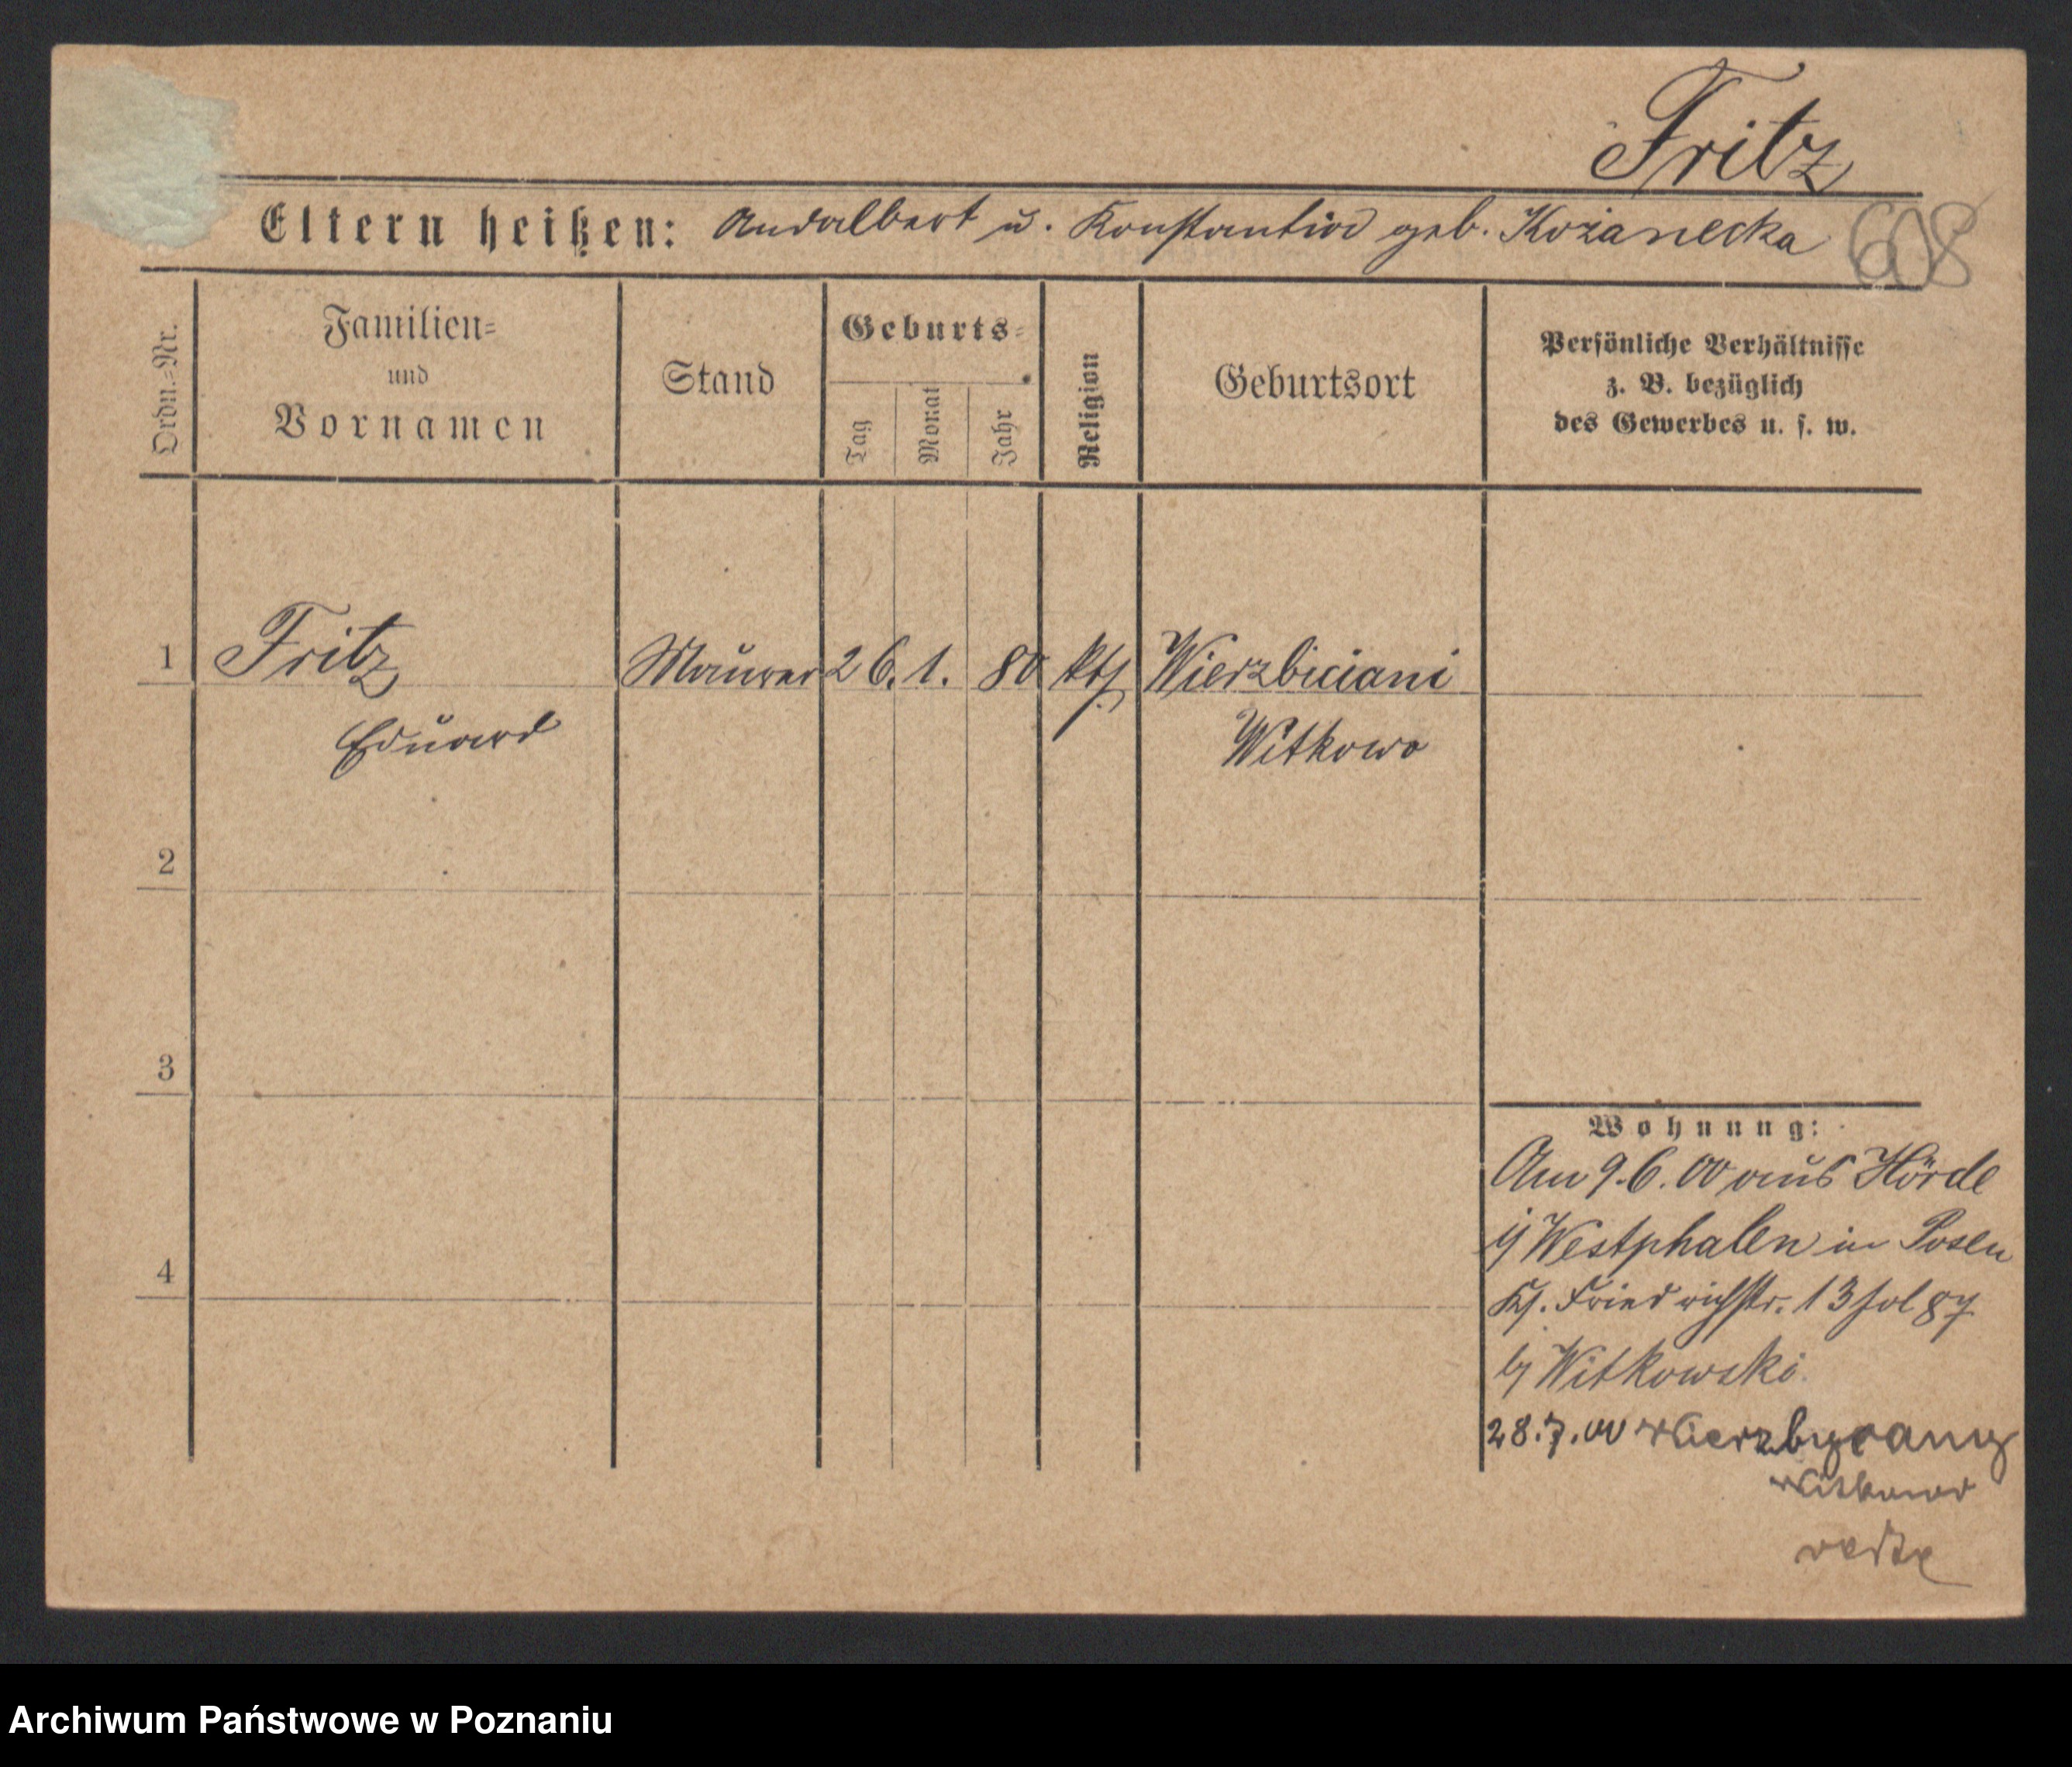 Fritz
Eltern heißen: Andalbert u. Konstantina geb. Kożanecka 608
Ordn.-Nr.
Familien-
und
Vornamen
Stand
Geburts-
Tag
Monat
Jahr
Religion
Geburtsort
Persönliche Verhältnisse
z. B. bezüglich
des Gewerbes u. s. w.
1 Fritz Maurer 26. 1. 80 kth. Wierzbiciani
Eduard Witkowo
2
3
4
Wohnung:
Am 9.6.00 aus Hörde
i/ Westphalen in Posen
Friedrichstr. 13 fol 87
b/ Witkowski.
28.7.00 Wierzbyczany
Witkowo